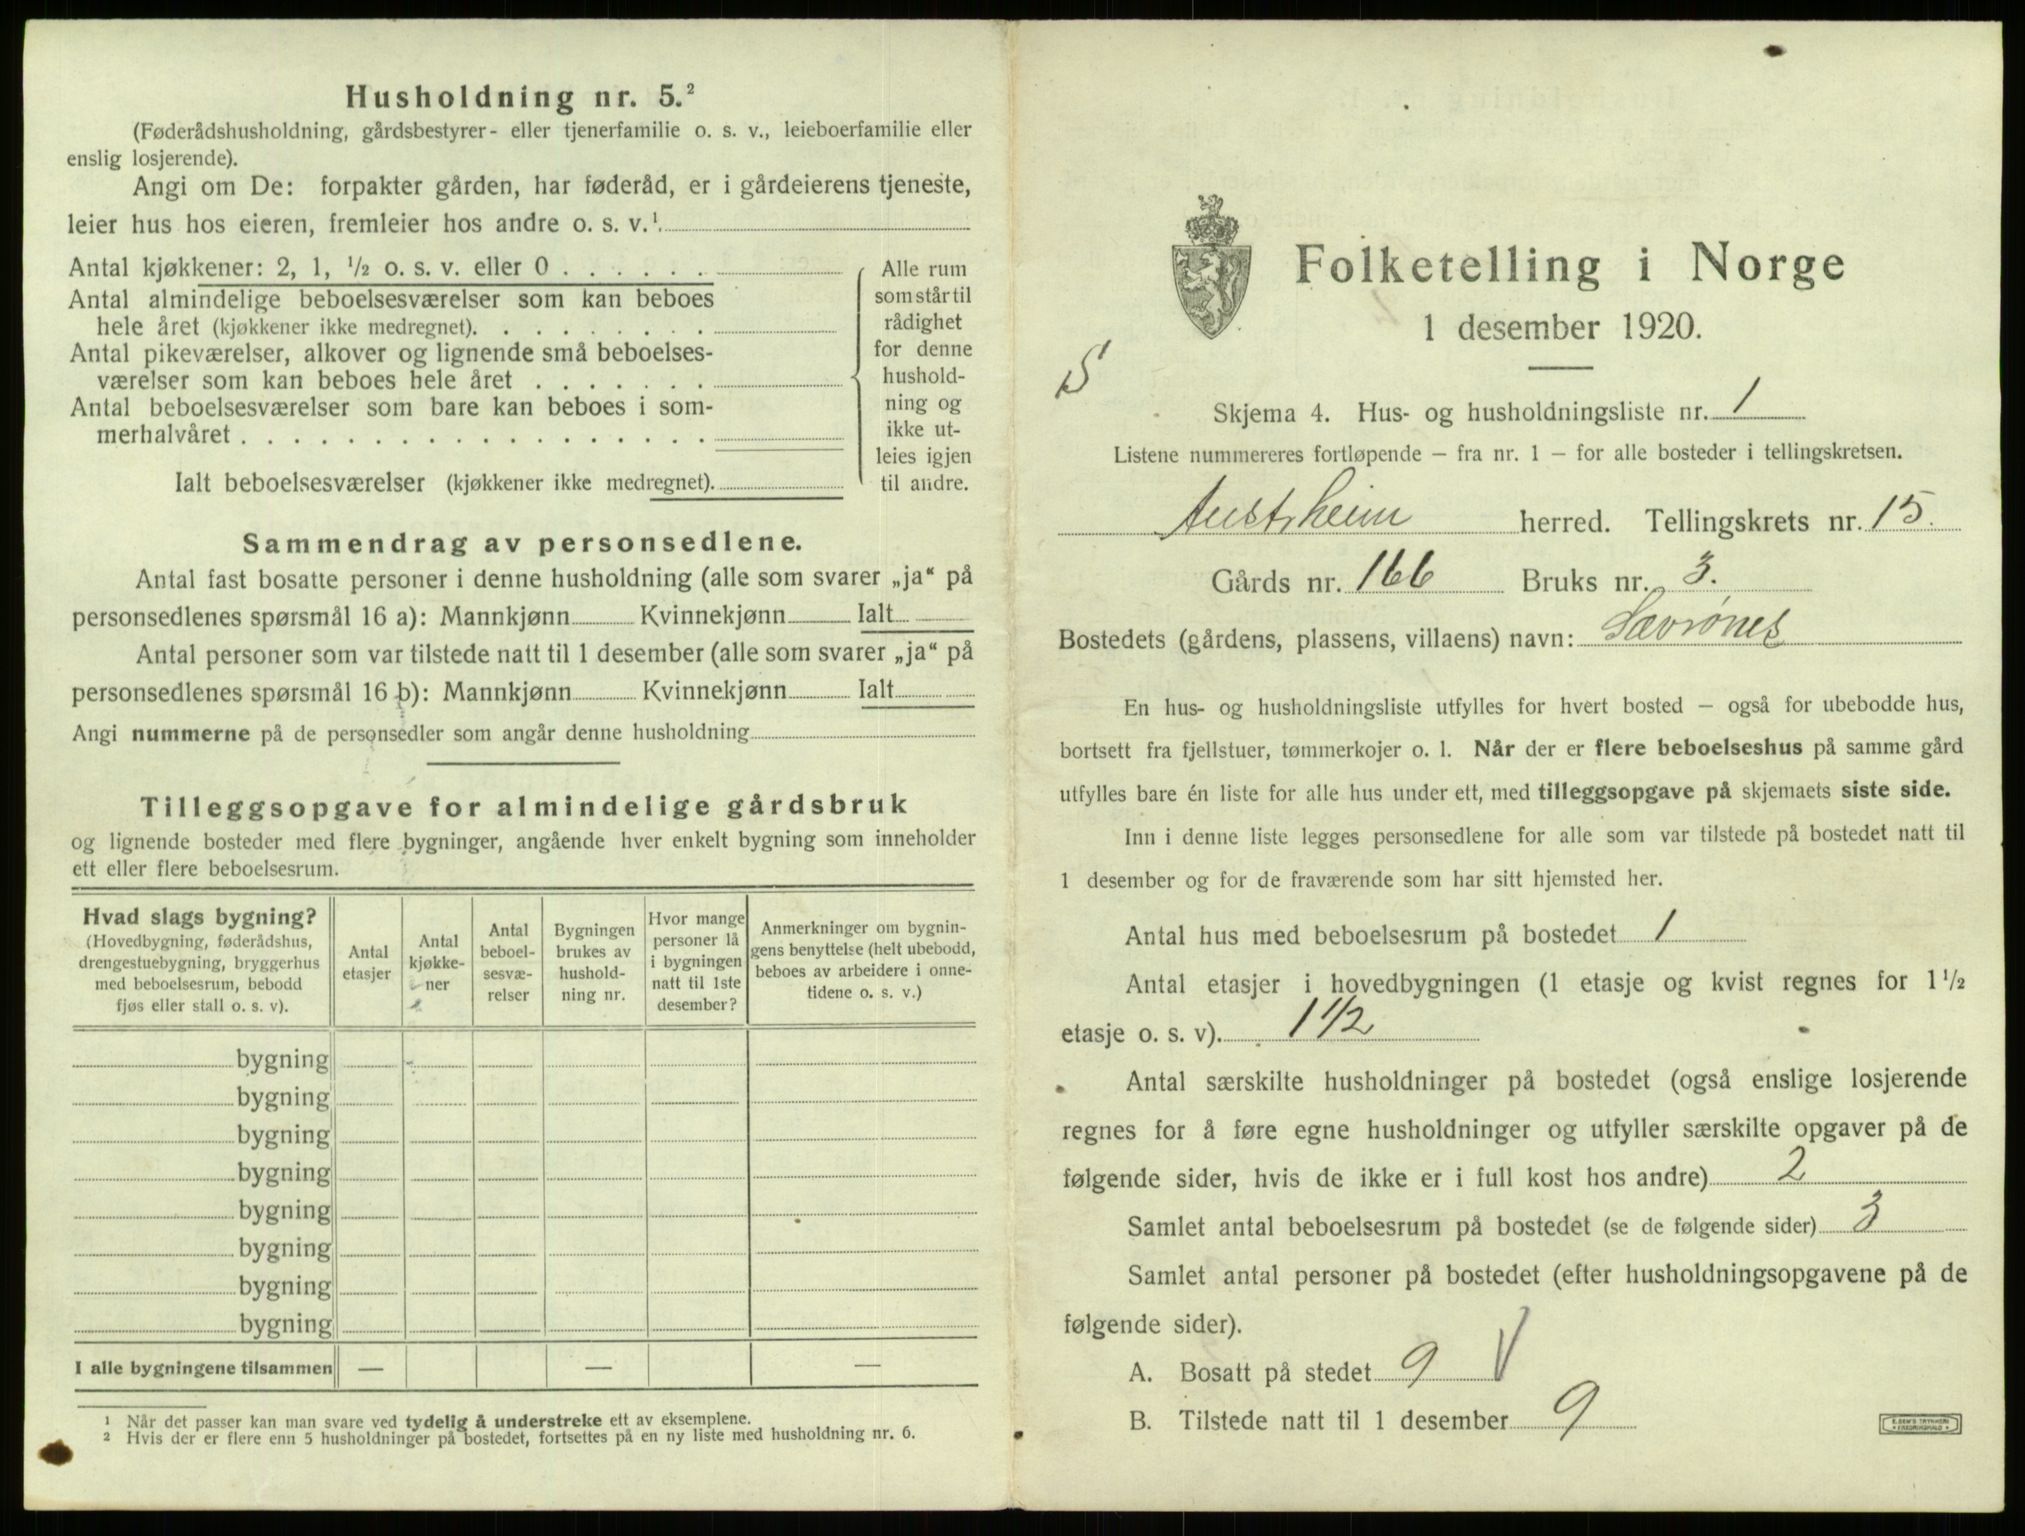 Husholdning nr. 5.²
(Føderådshusholdning, gårdsbestyrer- eller tjenerfamilie o. s. v., leieboerfamilie eller
enslig losjerende).
Angi om De: forpakter gården, har føderåd, er i gårdeierens tjeneste,
leier hus hos eieren, fremleier hos andre o. s. v.¹
Antal kjøkkener: 2, 1, ½ o. s. v. eller 0 . . . . . .
Antal almindelige beboelsesværelser som kan beboes
hele året (kjøkkener ikke medregnet). . . . . . . . .
Antal pikeværelser, alkover og lignende små beboelses-
værelser som kan beboes hele året . . . . . . .
Antal beboelsesværelser som bare kan beboes i som-
merhalvåret . . . . . . . . . . . . . . . . . .
Ialt beboelsesværelser (kjøkkener ikke medregnet).
Alle rum
som står til
rådighet
for denne
hushold-
ning og
ikke ut-
leies igjen
til andre.
Sammendrag av personsedlene.
Antal fast bosatte personer i denne husholdning (alle som svarer „ja“ på
personsedlenes spørsmål 16 a): Mannkjønn Kvinnekjønn Ialt
Antal personer som var tilstede natt til 1 desember (alle som svarer „ja“ på
personsedlenes spørsmål 16 b): Mannkjønn Kvinnekjønn Ialt
Angi nummerne på de personsedler som angår denne husholdning
Tilleggsopgave for almindelige gårdsbruk
og lignende bosteder med flere bygninger, angående hver enkelt bygning som inneholder
ett eller flere beboelsesrum.
Hvad slags bygning?
(Hovedbygning, føderådshus,
drengestuebygning, bryggerhus
med beboelsesrum, bebodd
fjøs eller stall o. s. v).
Antal
etasjer
Antal
kjøkke-
ner
Antal
beboel-
sesvæ-
relser
Bygningen
brukes av
hushold-
ning nr.
Hvor mange
personer lå
i bygningen
natt til 1ste
desember?
Anmerkninger om bygnin-
gens benyttelse (helt ubebodd,
beboes av arbeidere i onne-
tidene o. s. v.)
bygning
bygning
bygning
bygning
bygning
bygning
bygning
bygning
I alle bygningene tilsammen — — —
¹ Når det passer kan man svare ved tydelig å understreke ett av eksemplene.
² Hvis der er flere enn 5 husholdninger på bostedet, fortsettes på en ny liste med husholdning nr. 6.
Folketelling i Norge
1 desember 1920.
S
Skjema 4. Hus- og husholdningsliste nr. 1
Listene nummereres fortløpende — fra nr. 1 — for alle bosteder i tellingskretsen.
Austrheim herred. Tellingskrets nr. 15.
Gårds nr. 166 Bruks nr. 3.
Bostedets (gårdens, plassens, villaens) navn: Sævrønes
En hus- og husholdningsliste utfylles for hvert bosted — også for ubebodde hus,
bortsett fra fjellstuer, tømmerkojer o. l. Når der er flere beboelseshus på samme gård
utfylles bare én liste for alle hus under ett, med tilleggsopgave på skjemaets siste side.
Inn i denne liste legges personsedlene for alle som var tilstede på bostedet natt til
1 desember og for de fraværende som har sitt hjemsted her.
Antal hus med beboelsesrum på bostedet 1
Antal etasjer i hovedbygningen (1 etasje og kvist regnes for 1 ½
etasje o. s. v). 1 1/2
Antal særskilte husholdninger på bostedet (også enslige losjerende
regnes for å føre egne husholdninger og utfyller særskilte opgaver på de
følgende sider, hvis de ikke er i full kost hos andre) 2
Samlet antal beboelsesrum på bostedet (se de følgende sider) 3
Samlet antal personer på bostedet (efter husholdningsopgavene på de
følgende sider).
A. Bosatt på stedet 9 V
B. Tilstede natt til 1 desember 9